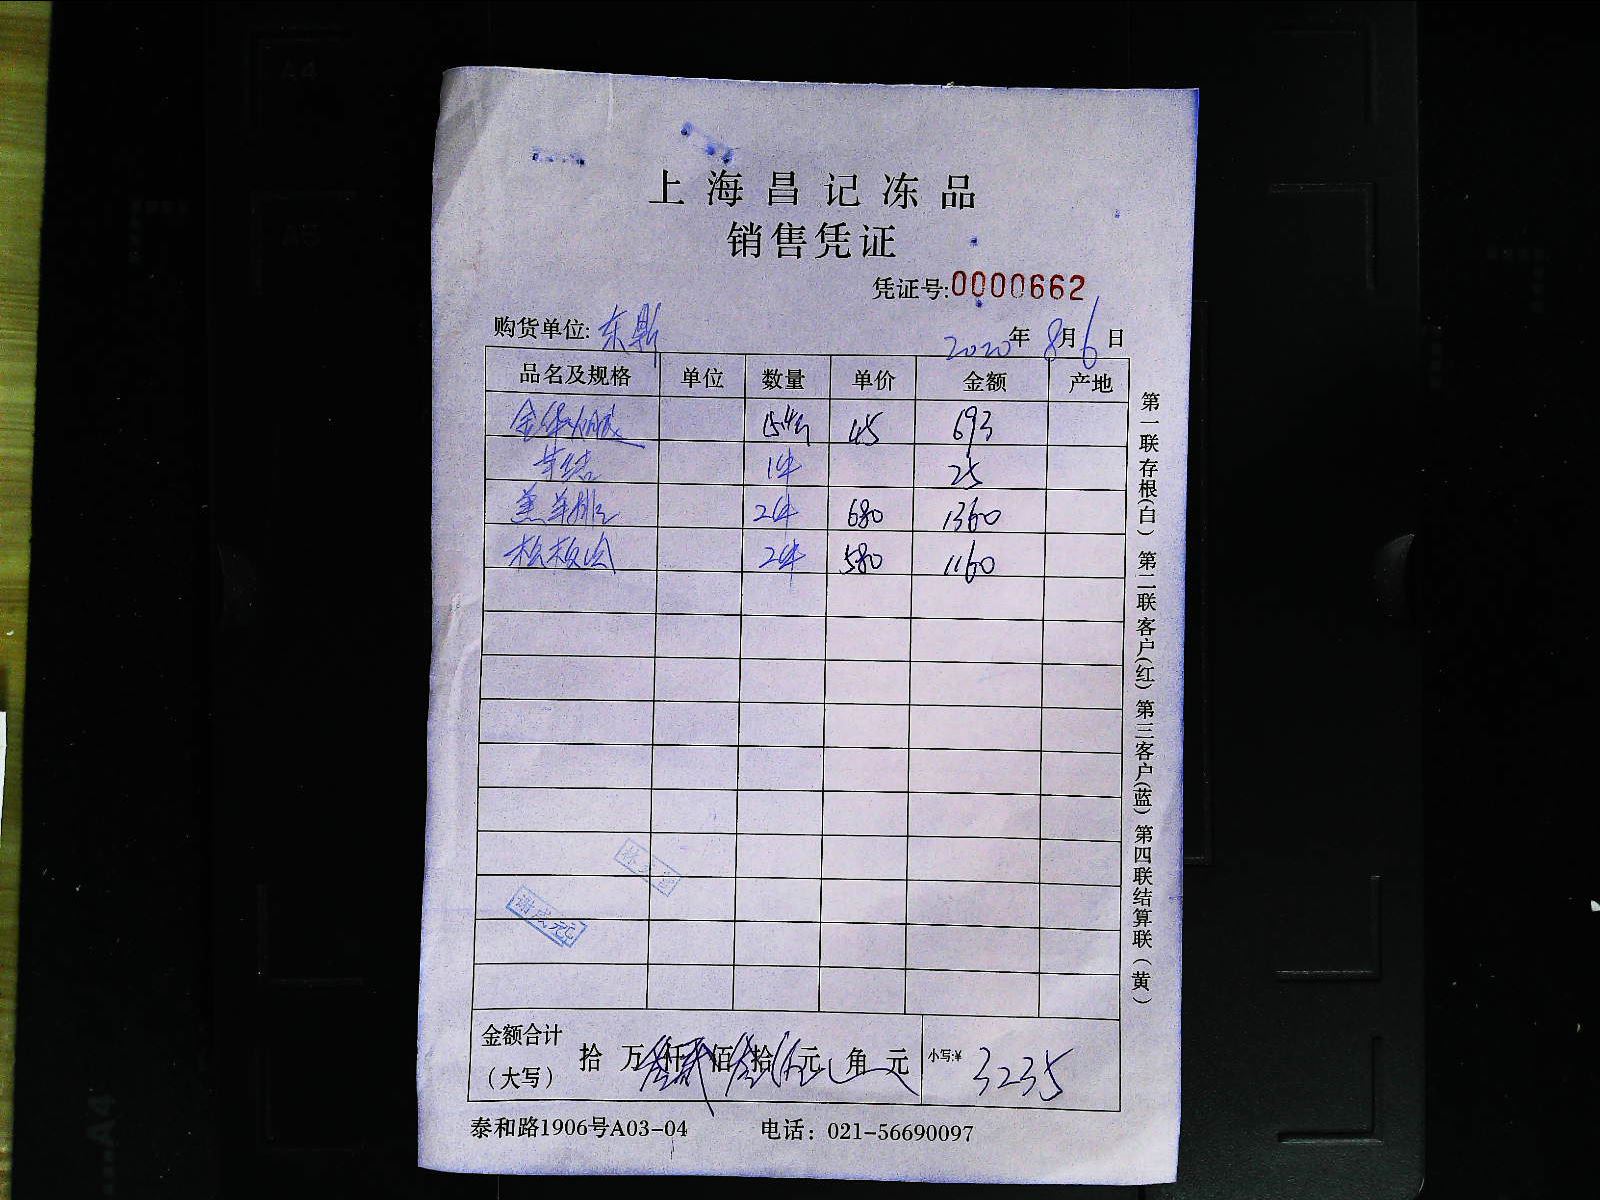 上海昌记冻品
销售凭证
凭证号:0000662
购货单位: 东鼎 2020年8月6日
品名及规格 单位 数量 单价 金额 产地
金华火腿 15.4 45 693
羊结 1件 25
羔羊排 2件 680 1360
松板肉 2件 580 1160
谢成元
金额合计
(大写)
拾 万叁仟贰佰叁拾伍元 角 元 小写:¥ 3235
泰和路1906号A03-04 电话: 021-56690097
第一联存根(白) 第二联客户(红) 第三客户(蓝) 第四联结算联(黄)